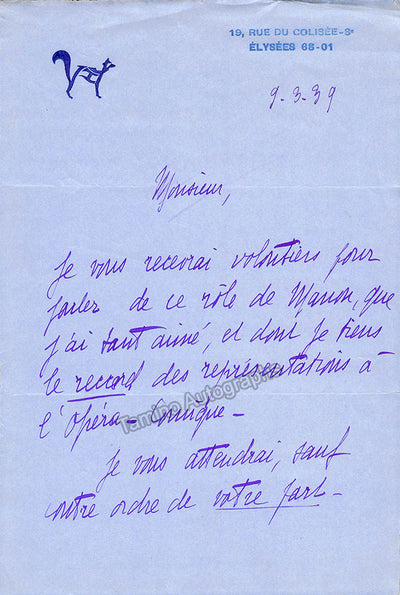 19, RUE DU COLISÉE-8e
ÉLYSÉES 68-01
9-3-39
Monsieur,
Je vous recevrai volontiers pour
parler de ce rôle de Manon, que
j'ai tant aimé, et dont je tiens
le record des représentations à
l'Opéra-Comique-
Je vous attendrai, sauf
contre ordre de votre part-
Tamino Autographs